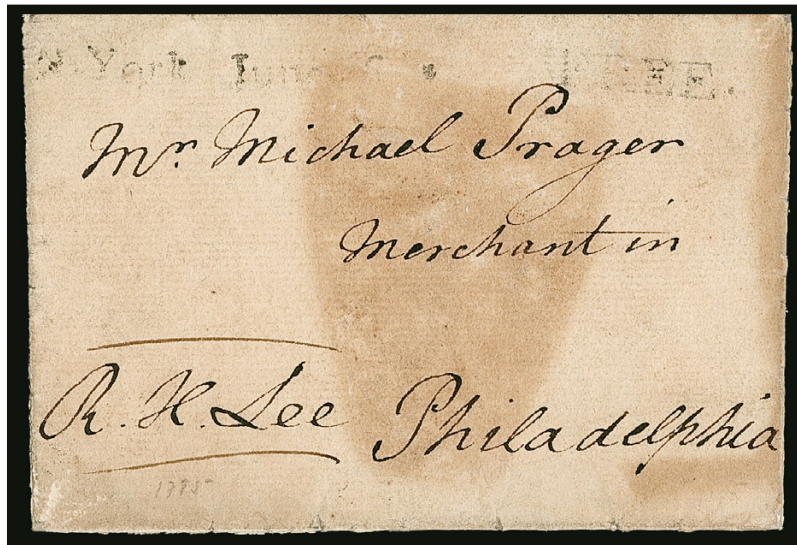 York June FREE
Mr. Michael Prager
Merchant in
R. H. Lee Philadelphia